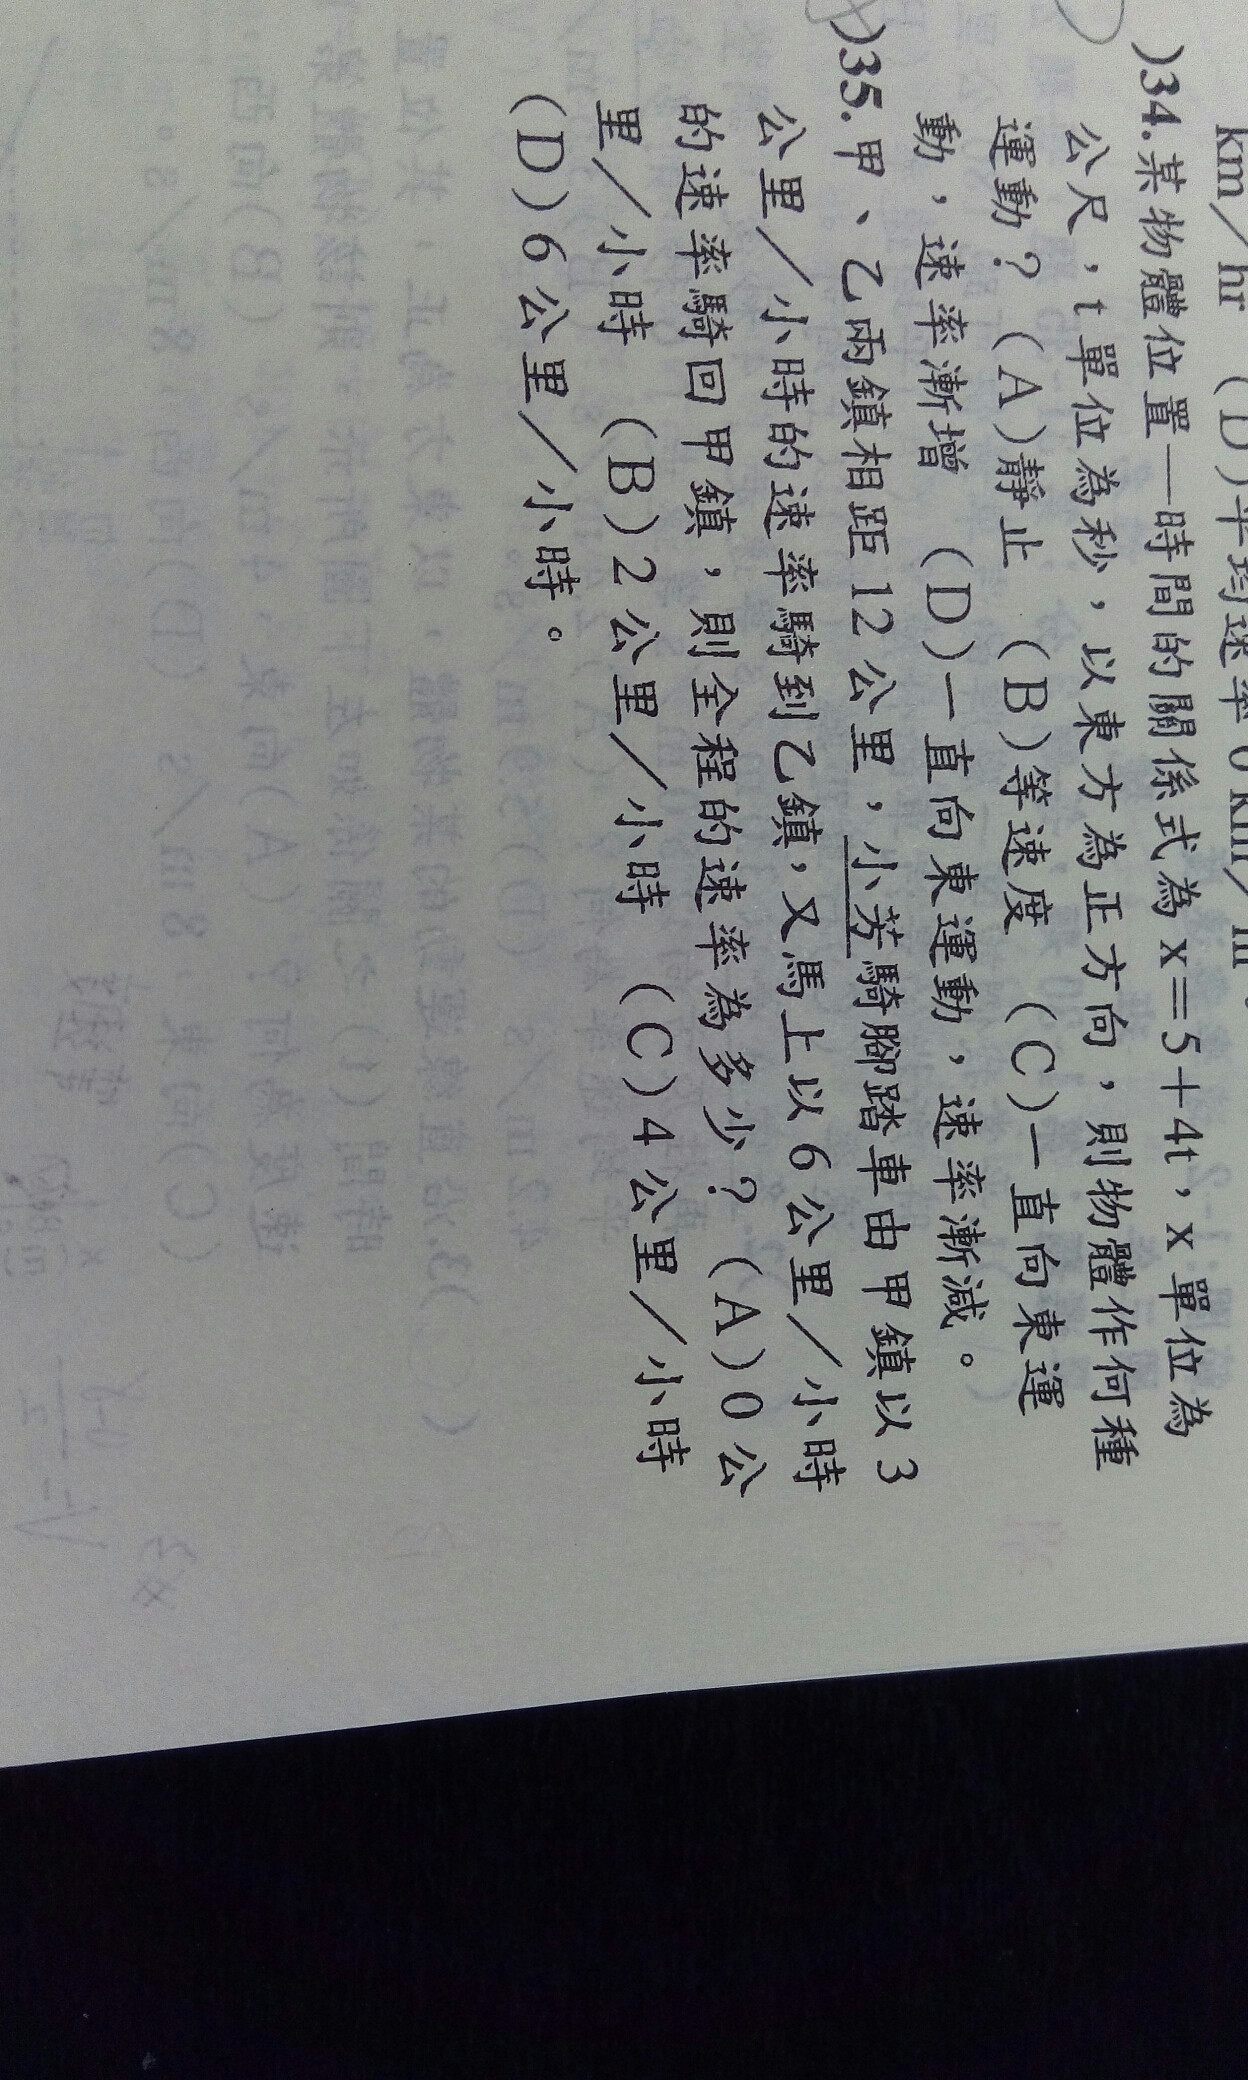 km／hr　(D)平均速率0 km／hr。
)34.某物體位置—時間的關係式為x＝5＋4t，x單位為
公尺，t單位為秒，以東方為正方向，則物體作何種
運動？　(A)靜止　(B)等速度　(C)一直向東運
動，速率漸增　(D)一直向東運動，速率漸減。
)35.甲、乙兩鎮相距12公里，小芳騎腳踏車由甲鎮以3
公里／小時的速率騎到乙鎮，又馬上以6公里／小時
的速率騎回甲鎮，則全程的速率為多少？　(A)0公
里／小時　(B)2公里／小時　(C)4公里／小時
(D)6公里／小時。